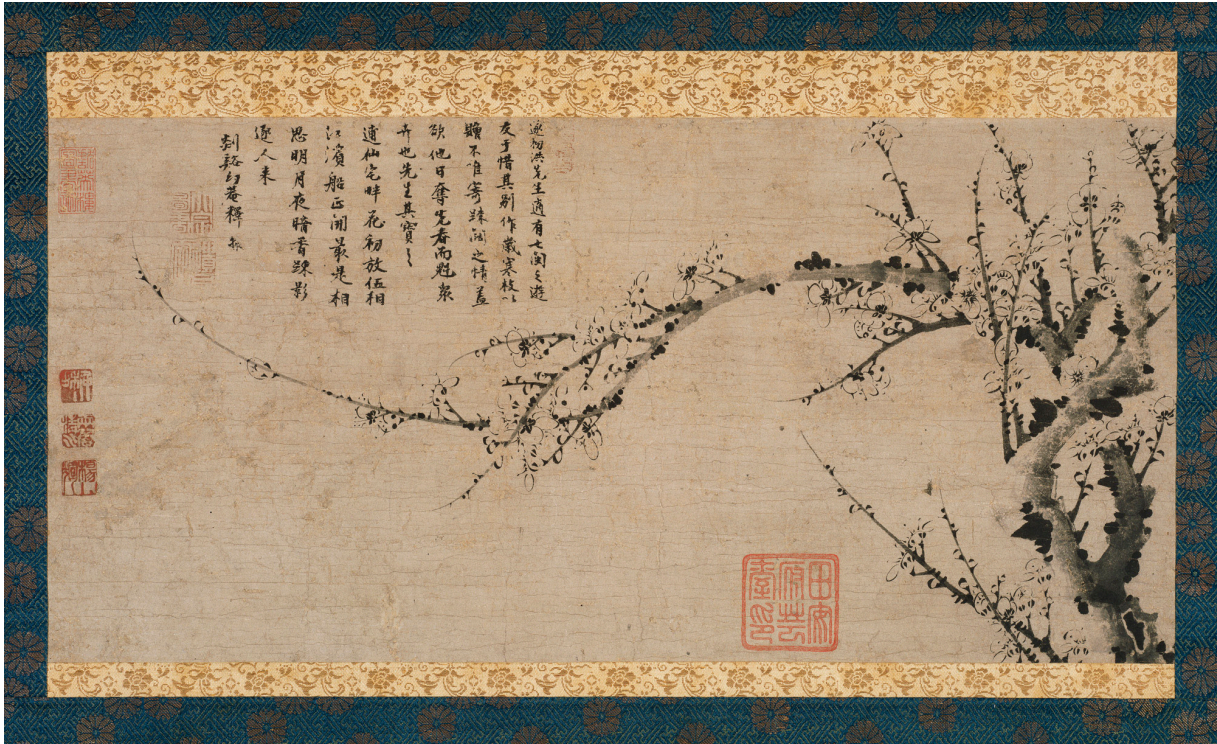 邃初洪先生適有七閩之遊
友于惜其別作歲寒枝以
贐不唯寄踈闊之情蓋
欲他日奪先春而魁衆
卉也先生其寶之
逋仙宅畔花初放伍相
江濱船正開最是相
思明月夜暗香踈影
逐人来
剡谿幻菴釋
田安
府芸
臺印